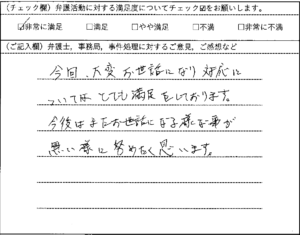 (チェック欄) 弁護活動に対する満足度についてチェック☑をお願いします。
☑非常に満足 □満足 □やや満足 □不満 □非常に不満
(ご記入欄) 弁護士、事務局、事件処理に対するご意見、ご感想など
今回、大変お世話になり対応に
ついては とても満足をしております。
今後はまたお世話になる様な事が
無い様に努めたく思います。